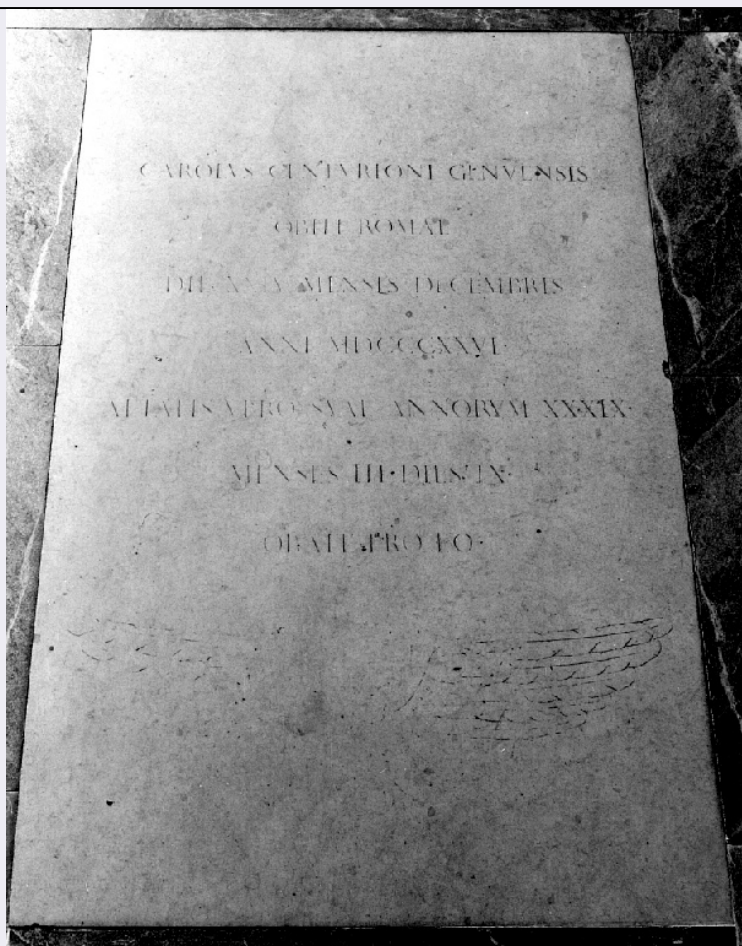 CAROLVS CENTVRIONI GENVENSIS
OBIIT ROMAE
DIE MENSES DECEMBRIS
ANNI MDCCCXXVI
AETATIS VERO SVAE ANNORVM XXXIX·
MENSES III·DIES·IX·
ORATE·PRO EO·